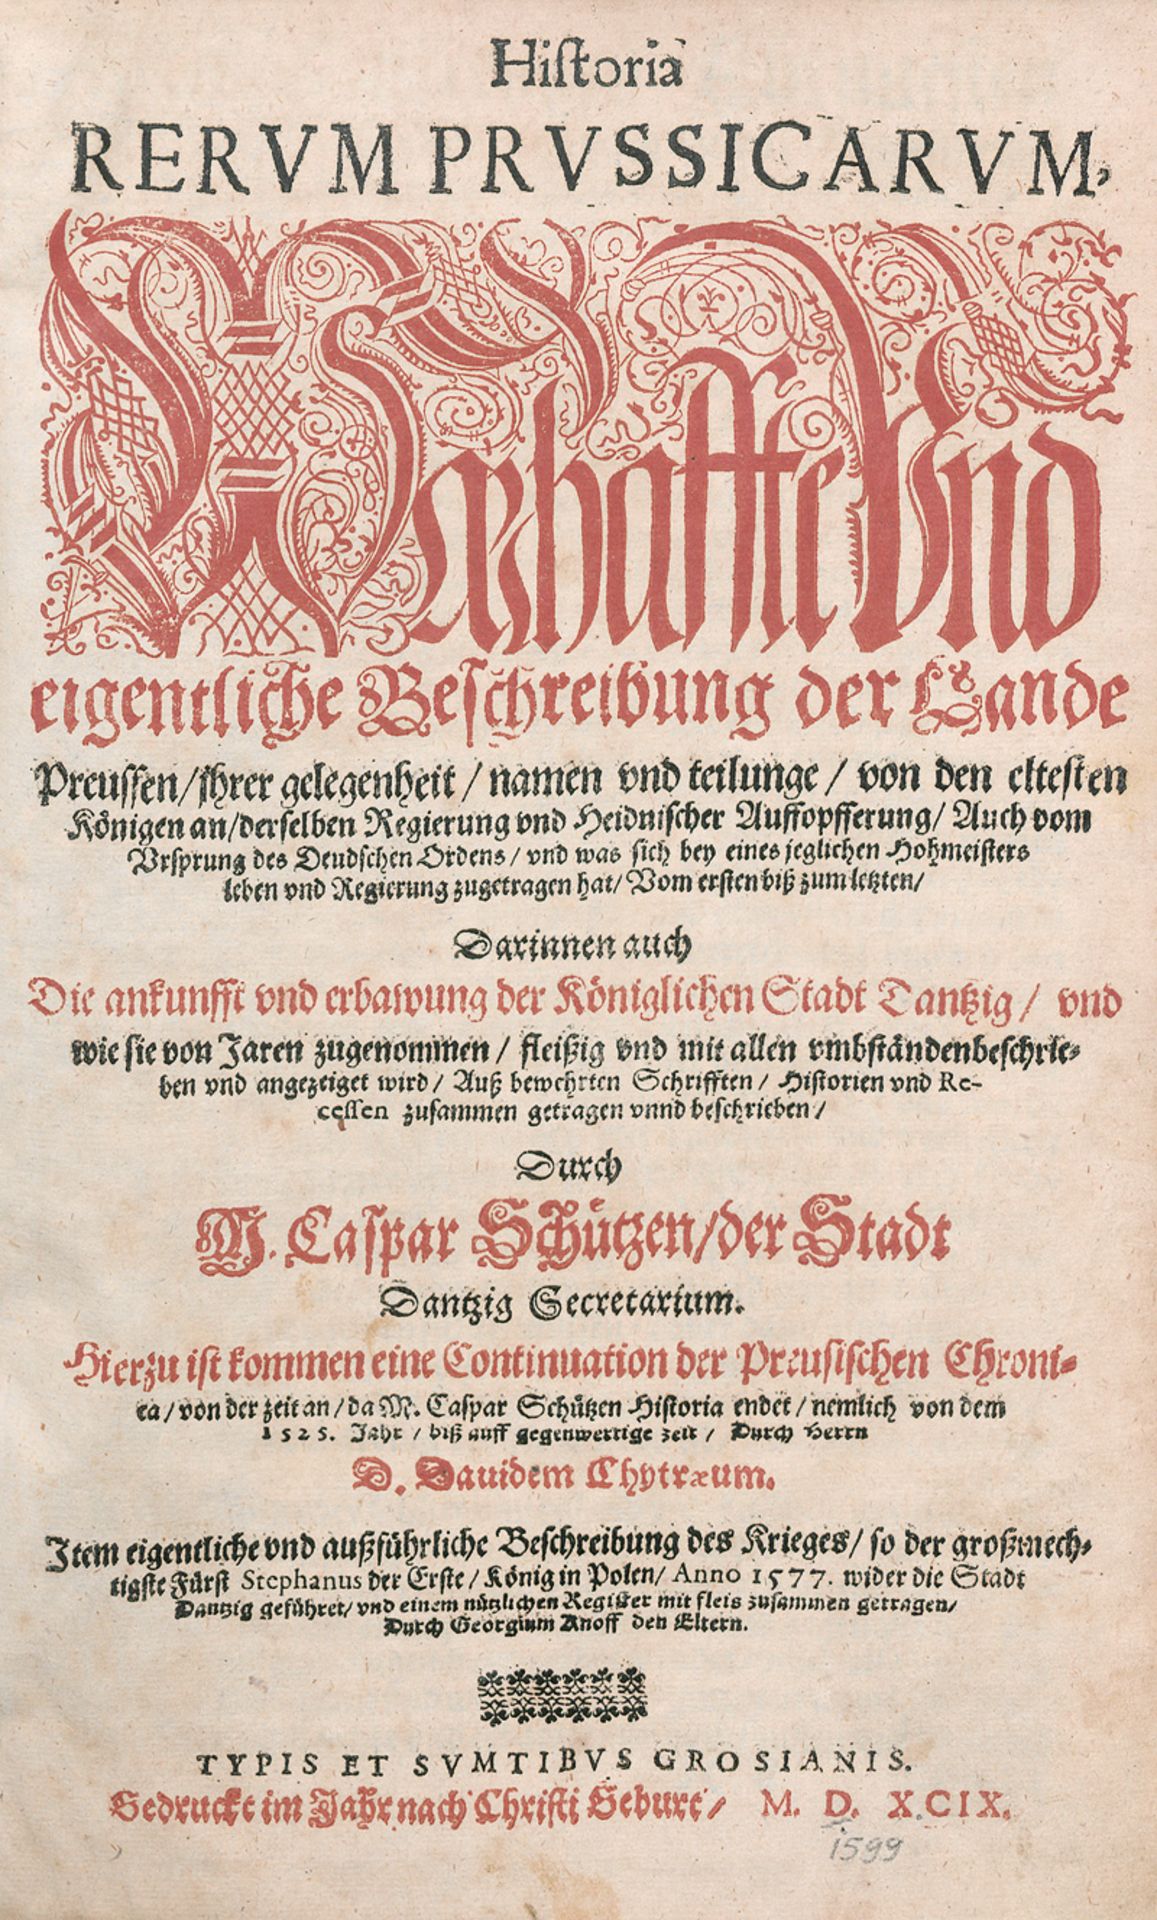 Historia
RERVM PRVSSICARVM,
Warhaffte Vnd
eigentliche Beschreibung der Lande
Preussen/ jhrer gelegenheit / namen vnd teilunge / von den eltesten
Königen an/ derselben Regierung vnd Heidnischer Auffopfferung/ Auch vom
Vrsprung des Deudschen Ordens/ vnd was sich bey eines jeglichen Hohmeisters
leben vnd Regierung zugetragen hat/ Vom ersten biß zum letzten/
Darinnen auch
Die ankunfft vnd erbawung der Königlichen Stadt Dantzig/ vnd
wie sie von Jaren zugenommen/ fleißig vnd mit allen vmbständen beschrie-
ben vnd angezeiget wird/ Auß bewehrten Schrifften/ Historien vnd Re-
cessen zusammen getragen vnnd beschrieben/
Durch
M. Caspar Schützen/ der Stadt
Dantzig Secretarium.
Hierzu ist kommen eine Continuation der Preusischen Chroni-
ca/ von der zeit an/ da M. Caspar Schützen Historia endet/ nemlich von dem
1525. Jahr/ biß auff gegenwertige zeit/ Durch Herrn
D. Dauidem Chytræum.
Item eigentliche vnd außführliche Beschreibung des Krieges/ so der großmech-
tigste Fürst Stephanus der Erste/ König in Polen/ Anno 1577. wider die Stadt
Dantzig geführet/ vnd einem nützlichen Register mit fleis zusammen getragen/
Durch Georgium Knoff den Eltern.
TYPIS ET SVMTIBVS GROSIANIS.
Gedruckt im Jahr nach Christi Geburt/ M. D. XCIX.
1599